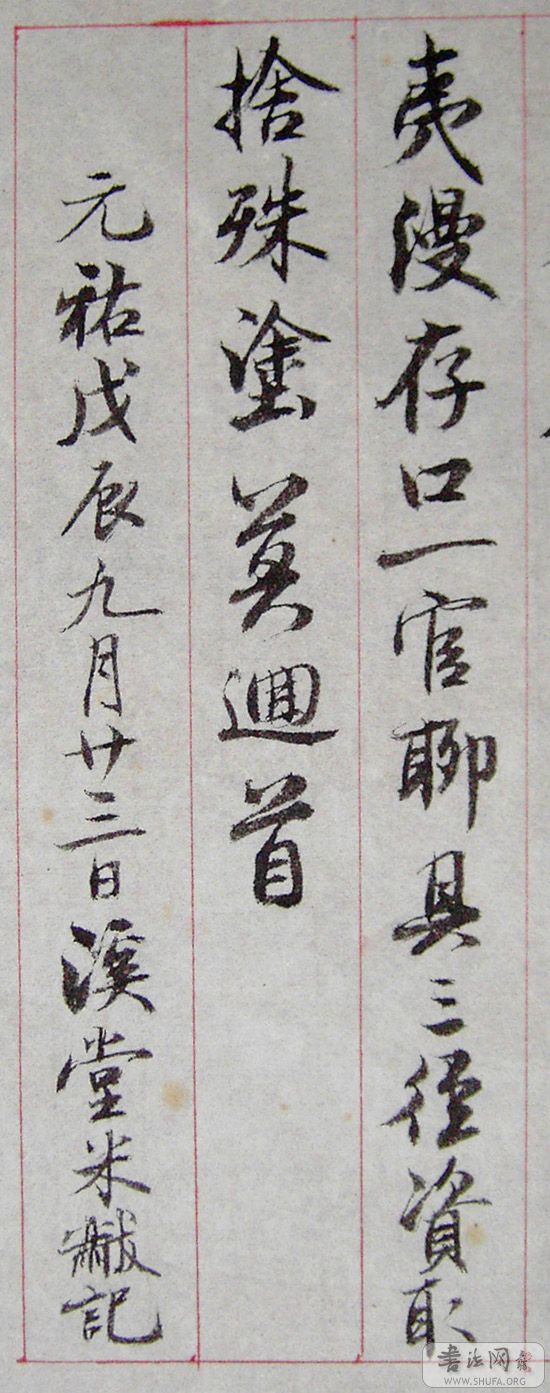 夷漫存口一官聊具三徑資取
捨殊塗莫逥首
元祐戊辰九月廿三日溪堂米黻記
書法网
WWW.SHUFA.ORG